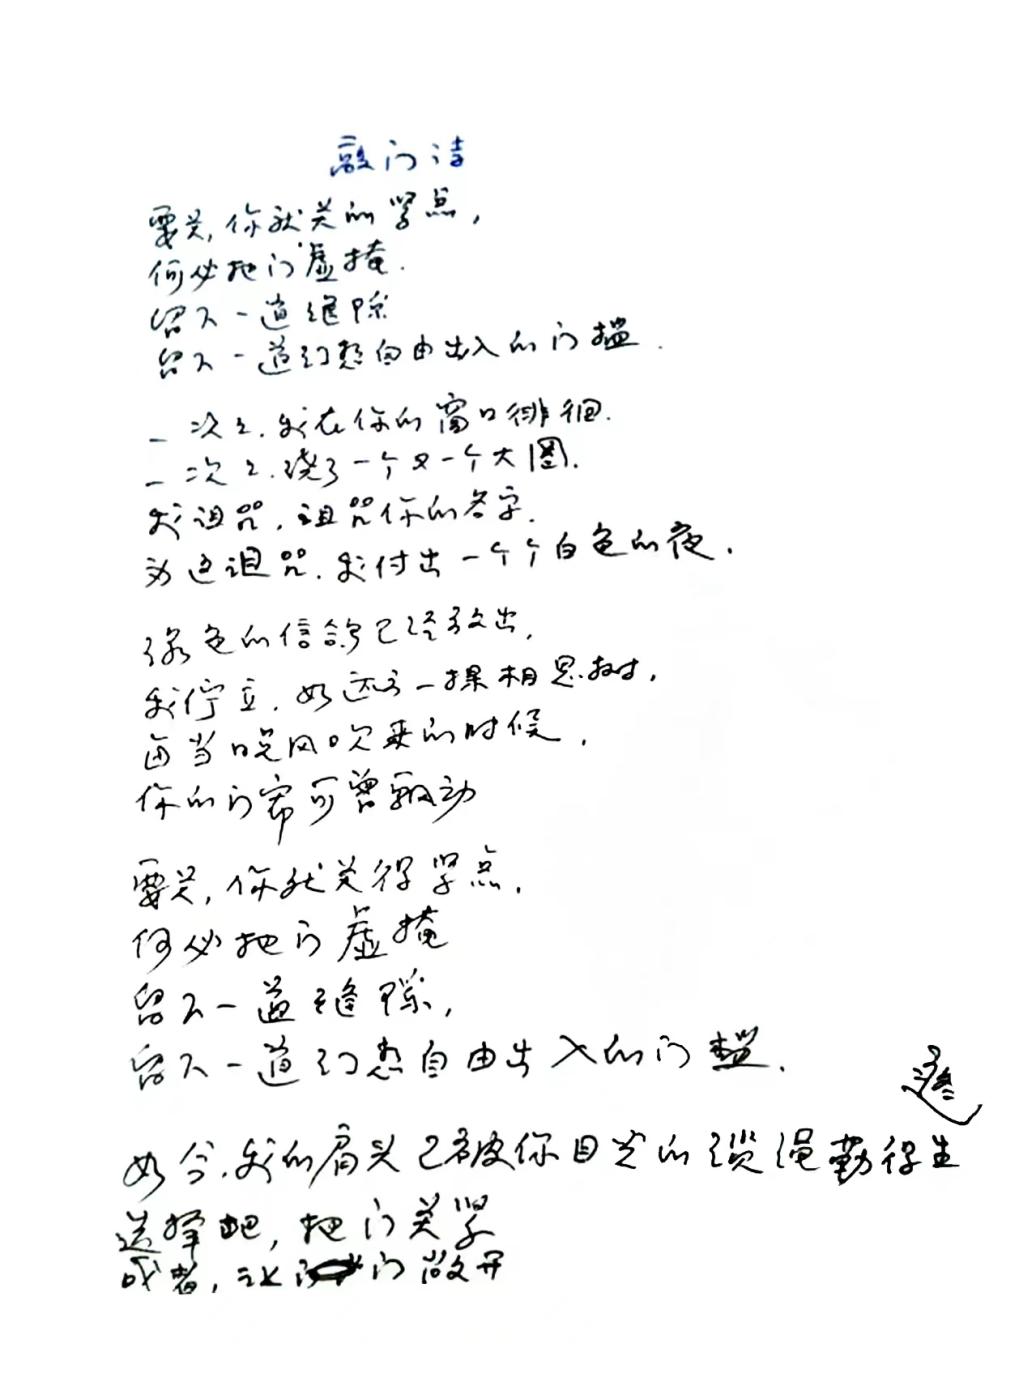 敲门诗
要关，你就关的紧点，
何必把门虚掩．
留下一道缝隙
留下一道幻想自由出入的门槛．
一次次．我在你的窗口徘徊．
一次次．绕了一个又一个大圈．
我诅咒，诅咒你的名字．
为这诅咒．我付出一个个白色的夜．
绿色的信鸽已经放出，
我伫立．如远方一棵相思树，
每当晚风吹来的时候，
你的门帘可曾飘动
要关，你就关得紧点，
何必把门虚掩
留下一道缝隙，
留下一道幻想自由出入的门槛．
如今，我的肩头已被你目光的缆绳勒得生
选择吧，把门关紧
或者，让门敞开